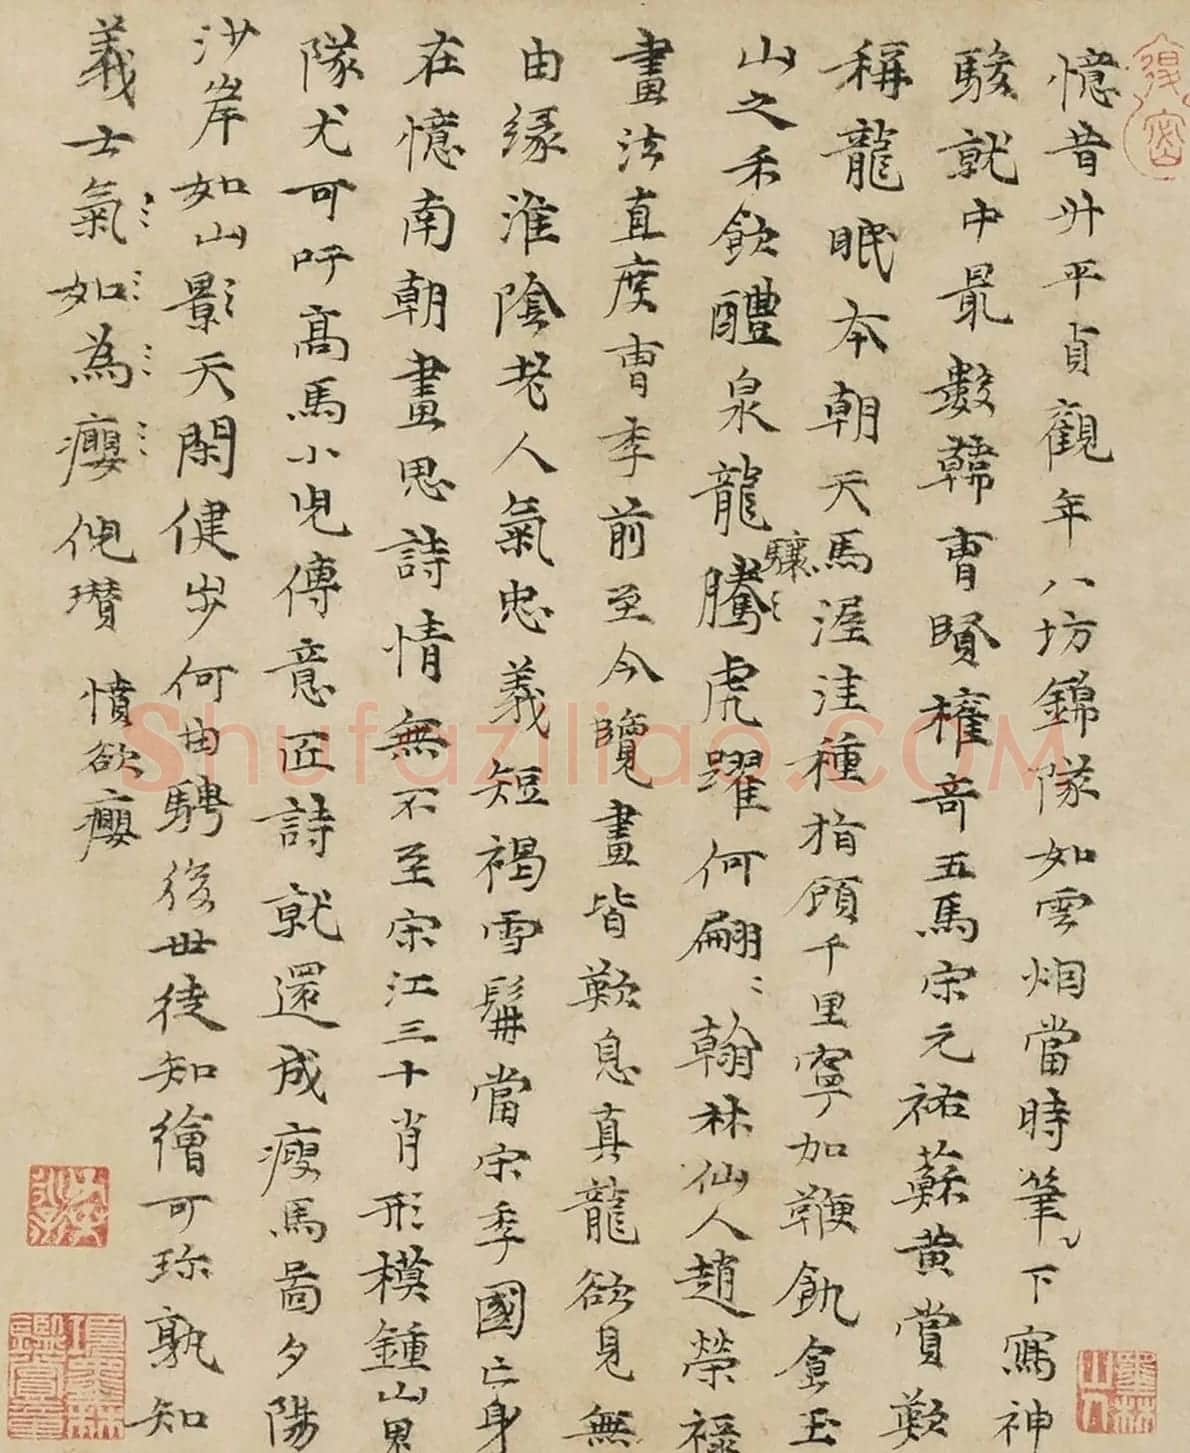 憶昔升平貞觀年八坊錦隊如雲烟當時筆下寫神
駿就中最數韓曹賢權奇五馬宋元祐蘇黃賞歎
稱龍眠本朝天馬渥洼種指顧千里寧加鞭飢食玉
驤
山之禾飲醴泉龍騰虎躍何翩〻翰林仙人趙榮祿
畫法直度曹李前至今覽畫皆歎息真龍欲見無
由緣淮陰老人氣忠義短褐雪髯當宋季國亡身
在憶南朝畫思詩情無不至宋江三十肖形模鍾山鬼
隊尤可吁高馬小兒傳意匠詩就還成瘦馬啚夕陽
沙岸如山影天閑健步何由騁後世徒知繪可珎孰知
義士氣如為癭俛瓚 憤欲癭
Shufaziliao.COM